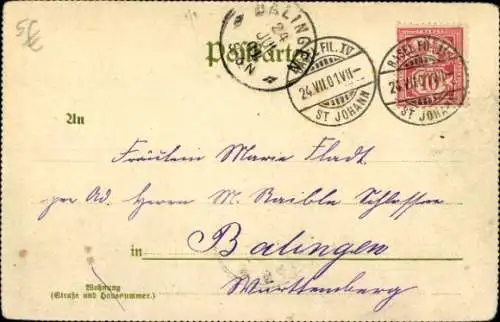 5€
BALINGEN
24 JUL
Postkarte
FIL. XV
24.VII.01.VII—
ST JOHANN
BASEL FIL. XV
24.VII.01
ST JOHANN
10
An
Fräulein Marie Fladt
pr. Ad. Herrn M. Raible Schlosser
in Balingen
Württemberg
Wohnung
(Straße und Hausnummer.)